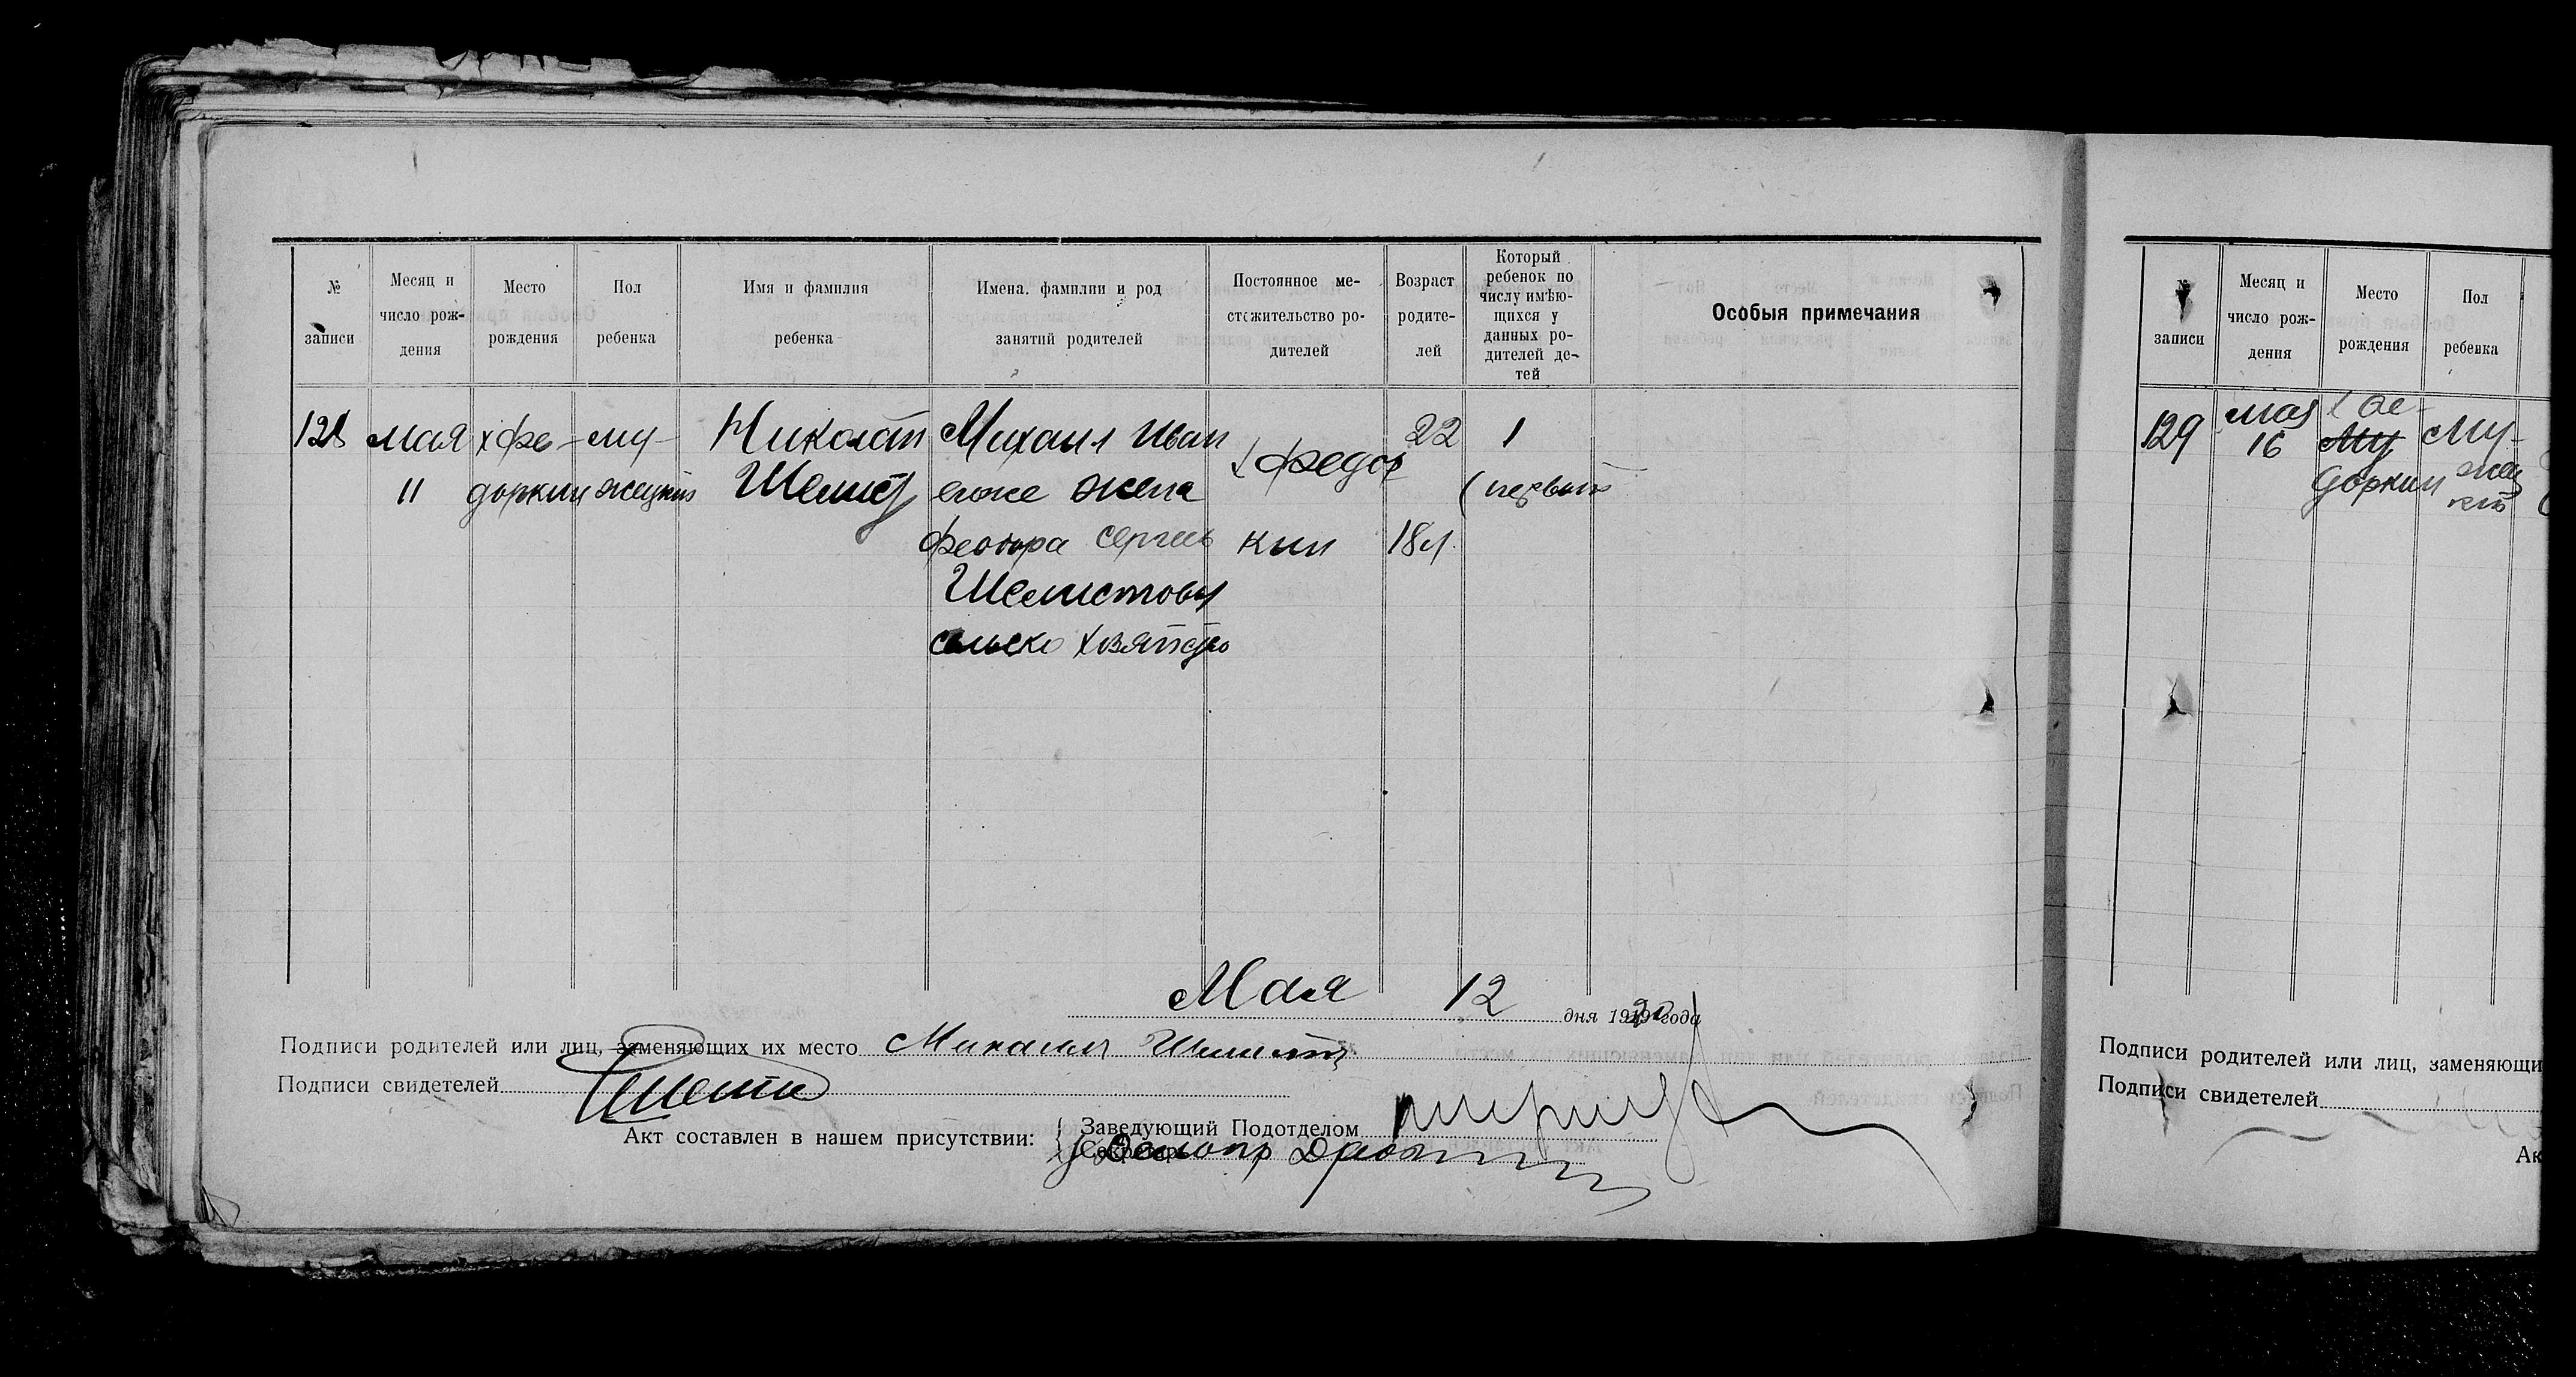 № записи
Месяц и число рож-дения
Место рождения
Пол ребенка
Имя и фамилия ребенка
Имена, фамилии и род занятий родителей
Постоянное ме-стожительство ро-дителей
Возраст родите-лей
Который ребенок по числу имѣю-щихся у данных ро-дителей де-тей
Особыя примечания
128
мая
11
х Фе-
доркин
му-
жеский
Николай
Шелист
Михаил Иван
егоже жена
Феодора Сергеев
Шелистовы
сельско хозяйство
х Федор
кин
22
18 л.
1
(первый
Мая 12 дня 1920 года
Подписи родителей или лиц, заменяющих их место Михаил Шелист
Подписи свидетелей
Акт составлен в нашем присутствии:
Заведующий Подотделом
Секретарь
№ записи
Месяц и число рож-дения
Место рождения
Пол ребенка
129
мая
16
х Фе-
Му
доркин
Му-
жес
кий
Подписи родителей или лиц, заменяющи
Подписи свидетелей
Ак